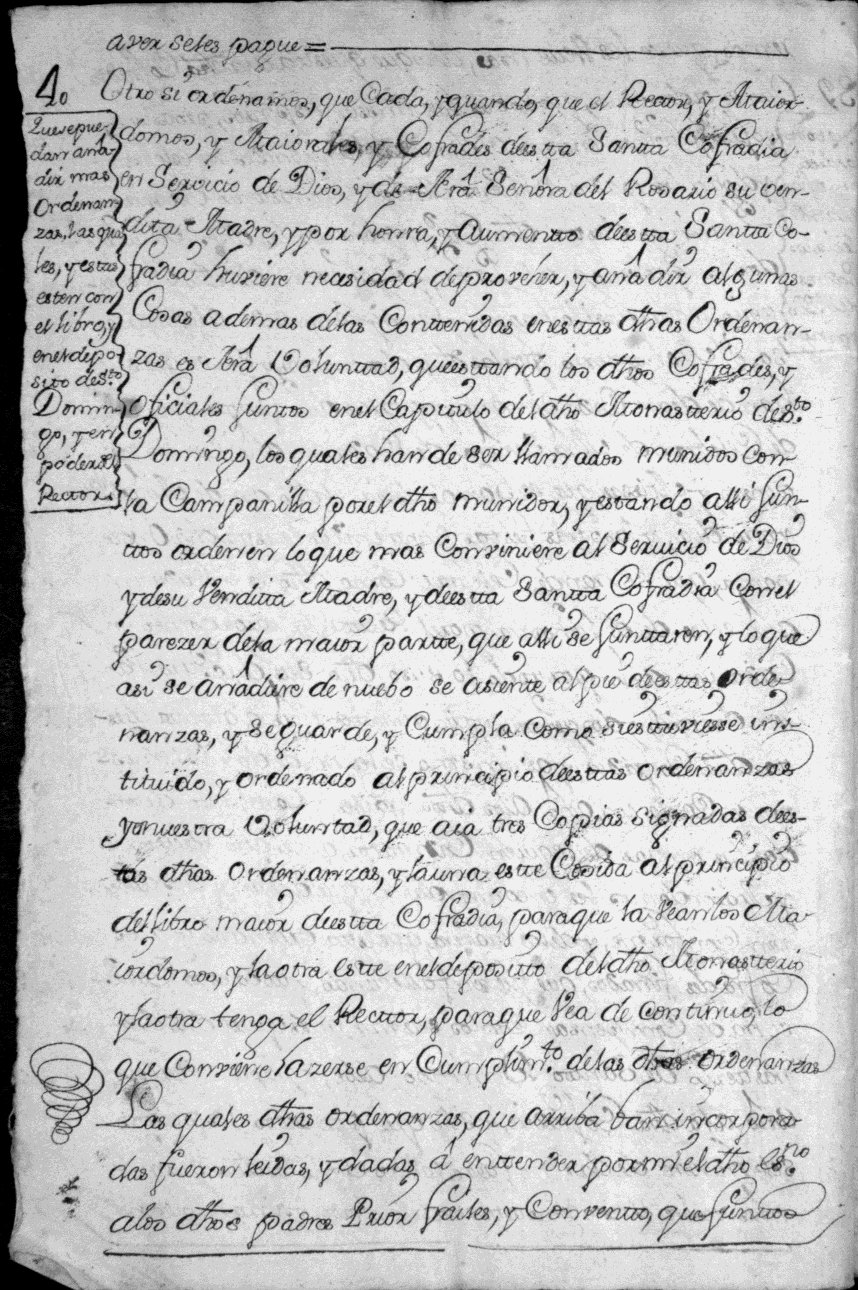 aver seles pague =
40
Que se pue-
dan aña
dir mas
Ordenan
zas, las qua
les, y estas
esten con
el libro, y
en el depo
sito de S.to
Domin
go, y en
poder del
Rector.
Otro si ordenamos, que Cada, y quando, que el Rector, y Maior-
domos, y Maiorales, y Cofrades de estta Santta Cofradia
en Servicio de Dios, y de Nrã Señora del Rosario su ven-
dita Madre, y por honra, y aumentto de estta Santta Co-
fradia huviere necesidad de proveher, y añadir algunas
Cosas ademas de las Conttenidas en esttas dhas Ordenan-
zas es Nrã Volunttad, que esttando los dhos Cofrades, y
oficiales Juntos en el Capitulo del dho Monastterio de S.to
Domingo, los quales han de ser llamados munidos con
la Campanilla por el dho munidor, y estando alli Jun-
ttos ordenen lo que mas Conviniere al Servicio de Dios
y de su Venditta Madre, y de estta Santta Cofradia Con el
parezer de la maior partte, que alli se Junttaren, y lo que
asi se añadiere de nuebo se asiente al pie de esttas orde
nanzas, y se guarde, y Cumpla como si esttuviesse ins-
tituido, y ordenado al principio de esttas ordenanzas
y nuestra Voluntad, que aia tres Copias signadas de es-
tas dhas ordenanzas, y la una estte Cosida al principio
del libro maior de estta Cofradia, para que la Vean los Ma-
iordomos, y la otra estte en el deposito del dho Monastterio
y la otra tenga el Recttor, para que Vea de Continuo, lo
que Conviene hazerse en Cumplim.to de las dhas ordenanzas
Las quales dhas ordenanzas, que arriba ban incorpora-
das fueron leidas, y dadas á enttender por mi el dho Es.no
a los dhos padres Prior frailes, y Conventto, que Junttos